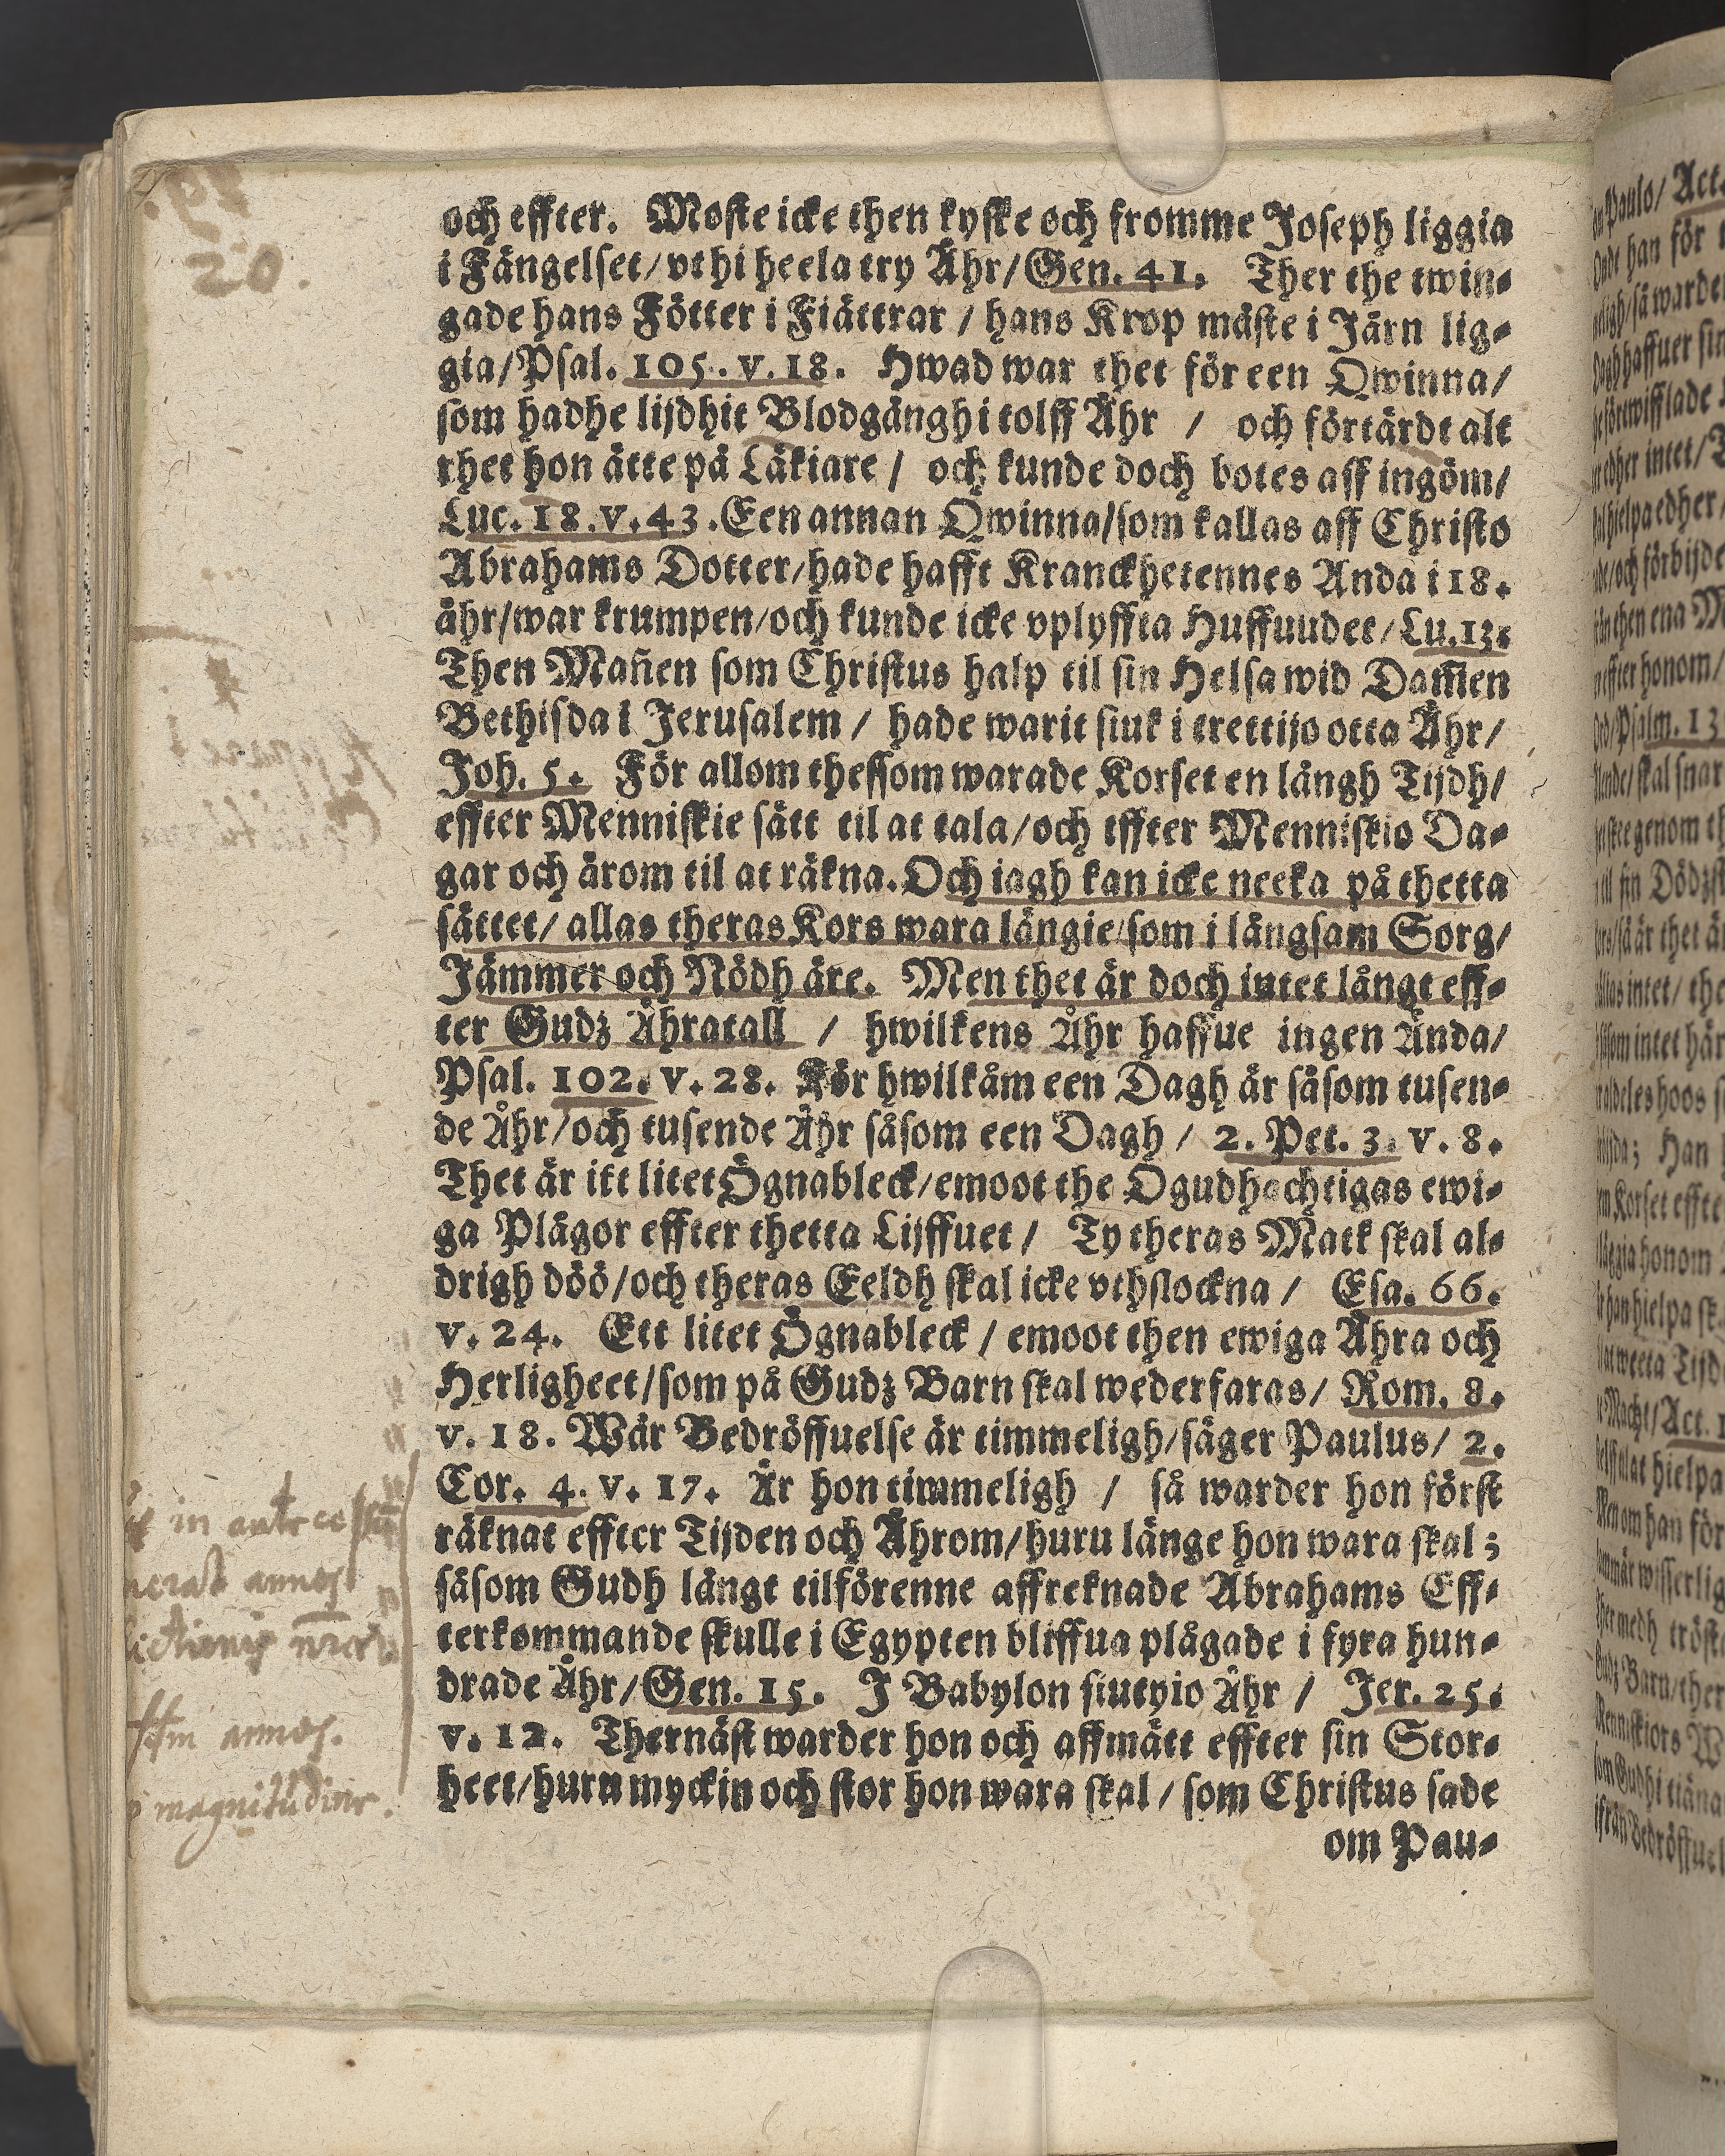 20.
och effter. Moste icke then kyske och fromme Joseph liggia
i Fängelset/ vthi heela try Åhr/ Gen. 41. Ther the twin-
gade hans Fötter i Fiättrar / hans Krop måste i Järn lig-
gia/ Psal. 105. v. 18. Hwad war thet för een Qwinna/
som hadhe lijdhit Blodgångh i tolff Åhr / och förtärdt alt
thet hon åtte på Läkiare / och kunde doch botes aff ingöm/
Luc. 18. v. 43. Een annan Qwinna/ som kallas aff Christo
Abrahams Dotter/ hade hafft Kranckhetennes Anda i 18.
åhr/ war krumpen/ och kunde icke vplyffta Huffuudet/ Lu. 13.
Then Mañen som Christus halp til sin Helsa wid Dam̃en
Bethisda i Jerusalem / hade warit siuk i trettijo otta Åhr/
Joh. 5. För allom thessom warade Korset en långh Tijdh/
effter Menniskie sätt til at tala/ och effter Menniskio Da-
gar och ärom til at räkna. Och iagh kan icke neeka på thetta
sättet/ allas theras Kors wara långie/ som i långsam Sorg/
Jämmer och Nödh äre. Men thet är doch intet långt eff-
ter Gudz Åhratall / hwilkens Åhr haffue ingen Ånda/
Psal. 102. v. 28. För hwilkåm een Dagh är såsom tusen-
de Åhr/ och tusende Åhr såsom een Dagh / 2. Pet. 3. v. 8.
Thet är itt litet Ögnableck/ emoot the Ogudhachtigas ewi-
ga Plågor effter thetta Lijffuet / Ty theras Matk skal al-
drigh döö/ och theras Eeldh skal icke vthslockna / Esa. 66.
v. 24. Ett litet Ögnableck / emoot then ewiga Åhra och
Herligheet/ som på Gudz Barn skal wederfaras/ Rom. 8.
v. 18. Wår Bedröffuelse är timmeligh/ säger Paulus/ 2.
Cor. 4. v. 17. Är hon timmeligh / så warder hon först
räknat effter Tijden och Åhrom/ huru länge hon wara skal;
såsom Gudh långt tilförenne affreknade Abrahams Eff-
terkommande skulle i Egypten bliffua plågade i fyra hun-
drade Åhr/ Gen. 15. J Babylon siutyio Åhr / Jer. 25.
v. 12. Thernäst warder hon och affmätt effter sin Stor-
heet/ huru myckin och stor hon wara skal / som Christus sade
om Pau-
in
annos
annos.
magnitudine.